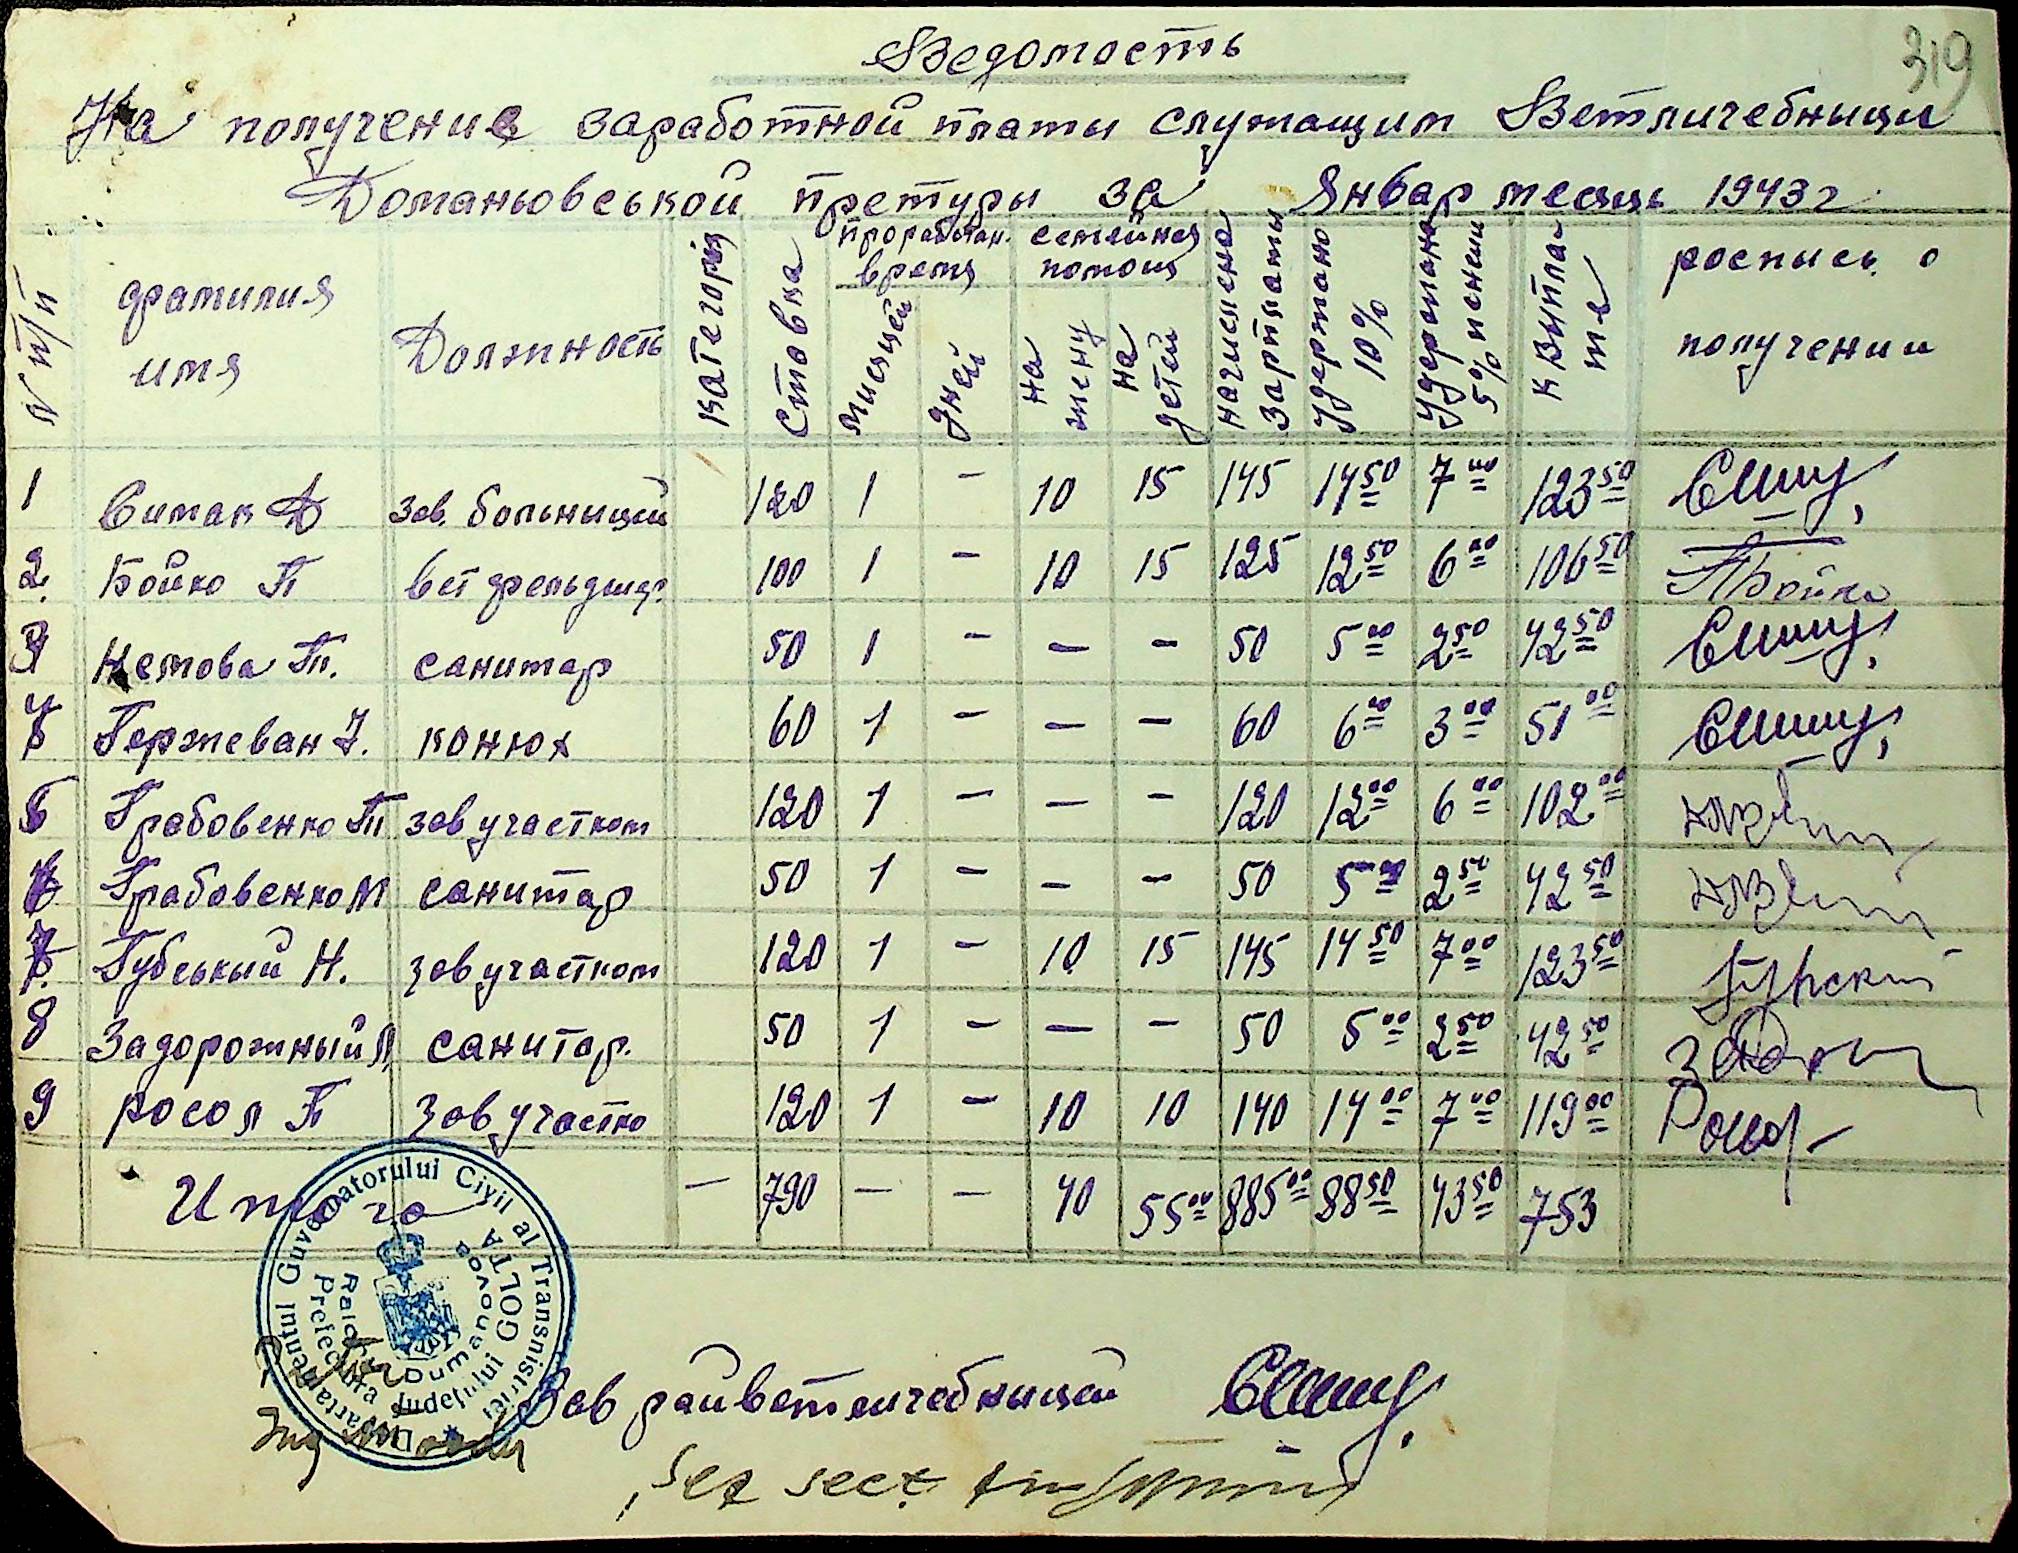 319
Ведомость
На получение заработной платы служащим Ветличебници
Доманьовськой претуры за Январ месяць 1943 г
N п/п фамилия имя Должность категорія ставка проработан. время месяцей дней семейная помощ на жену на детей начислено зарплаты удержано 10% удержано 5% пенсии к выплате роспись о получении
1 Симак Д зав. больницей 120 1 – 10 15 145 14 50 7 00 123 50
2. Бойко П вет фельдшер. 100 1 – 10 15 125 12 50 6 00 106 50 ПБойко
3 Нетова П. санитар 50 1 – – – 50 5 00 2 50 42 50
4 Гержеван І. конюх 60 1 – – – 60 6 00 3 00 51 00
5 Грабовенко П зав участком 120 1 – – – 120 12 00 6 00 102 00
6 Грабовенко М санитар 50 1 – – – 50 5 00 2 50 42 50
7. Губський Н. зав участком 120 1 – 10 15 145 14 50 7 00 123 50
8 Задорожный Л санитар. 50 1 – – – 50 5 00 2 50 42 50
9 росол П зав участко 120 1 – 10 10 140 14 00 7 00 119 00
Итого – 790 – – 40 55 00 885 00 88 50 43 50 753
Guvernatorului Civil al Transnistriei
Prefectura Județului GOLTA
Raion Dumanovca
Зав райветличебницей
Șef sect.
Ing